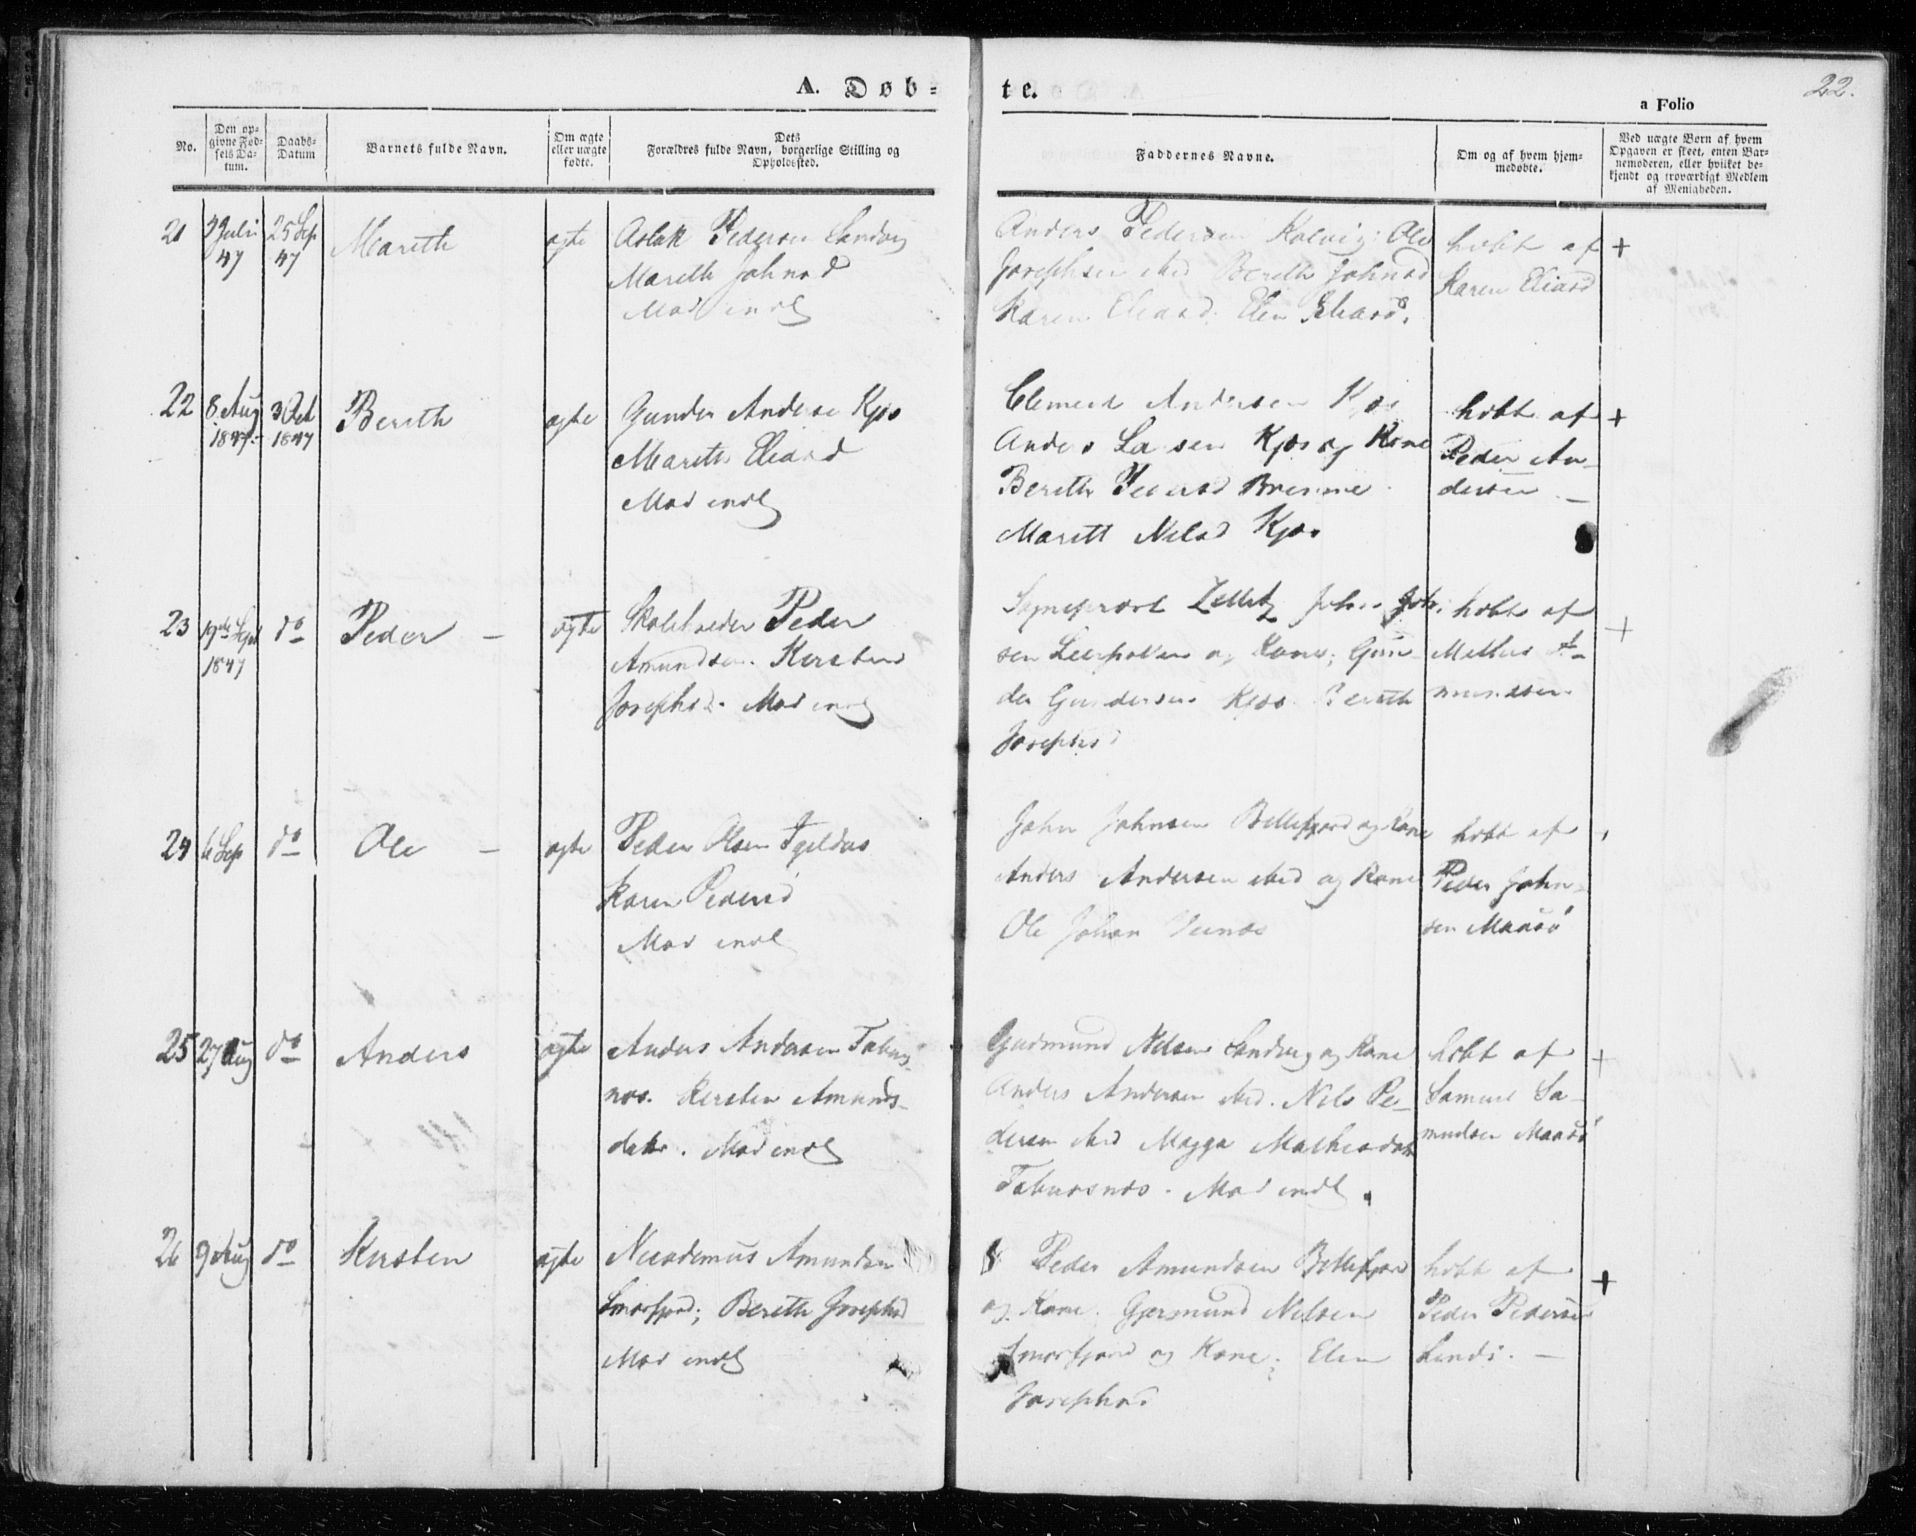 22.
A. Døb-te.
a Folio
No.
Den op-
givne Fød-
sels Da-
tum.
Daabs-
Datum
Barnets fulde Navn.
Om ægte
eller uægte
fødte.
Dets
Forældres fulde Navn, borgerlige Stilling og
Opholdssted.
Faddernes Navne.
Om og af hvem hjem-
medøbte.
Ved uægte Børn af hvem
Opgaven er skeet, enten Bar-
nemoderen, eller hvilket be-
kjendt og troværdigt Medlem
af Menigheden.
21
Juli
47
25 Sep
47
Mareth
ægte
Aslak Pedersen Sandvig
Mareth Johnsd
Mad indl
Anders Pedersen Kolvig; Ole
Josephsen ibid Bereth Johnsd
Karen Eliasd; Elen Eliasd.
hdbt af
Karen Eliasd
+
22
8 Aug
1847
3 Oct
1847
Bereth
ægte
Gunder Anderse Kjæs
Mareth Eliasd
Mad indl
Clement Andersen Kjæs
Anders Larsen Kjæs og Kone
Bereth Pedersd Brenne
Marett Nilsd Kjæs
hdbt af
Peder An-
dersen
+
23
19de Sept
1847
do
Peder
ægte
Skoleholder Peder
Amundsen. Kersten
Josephsd. Mad indl
Sognepræst Zetlitz John Joh
sen Leerpollen og Kone; Gun-
der Gundersen Kjæs Bereth
Josephsd
hdbt af
Mathis A-
mundsen
+
24
6 Sep
do
Ole
ægte
Peder Olsen
Karen Pedersd
Mad indl
John Johnsen Billefjord og Kone
Anders Andersen ibid og Kone
Ole Johan
hdbt af
Peder John-
sen Maasö
25
27 Aug
do
Anders
ægte
Anders Andersen Tabur-
næs. Kersten Amunds-
datr. Mad indl
Gudmund Nilsen Sandvig og Kone
Anders Andersen ibid. Nils Pe-
dersen ibid Magga Mathisdatr
Taburnæs. Mad indl.
hdbt af
Samuel Sa-
muelsen Maasö
+
26
9 Aug
do
Kersten
ægte
Nicodemus Amundsen
Smørfjord; Bereth Josephsd
Mad indl
Peder Amundsen Billefjord
og Kone. Gjermund Nilsen
Smørfjord og Kone; Elen
Josephsd.
hdbt af
Peder Pedersen
Lendi.
+